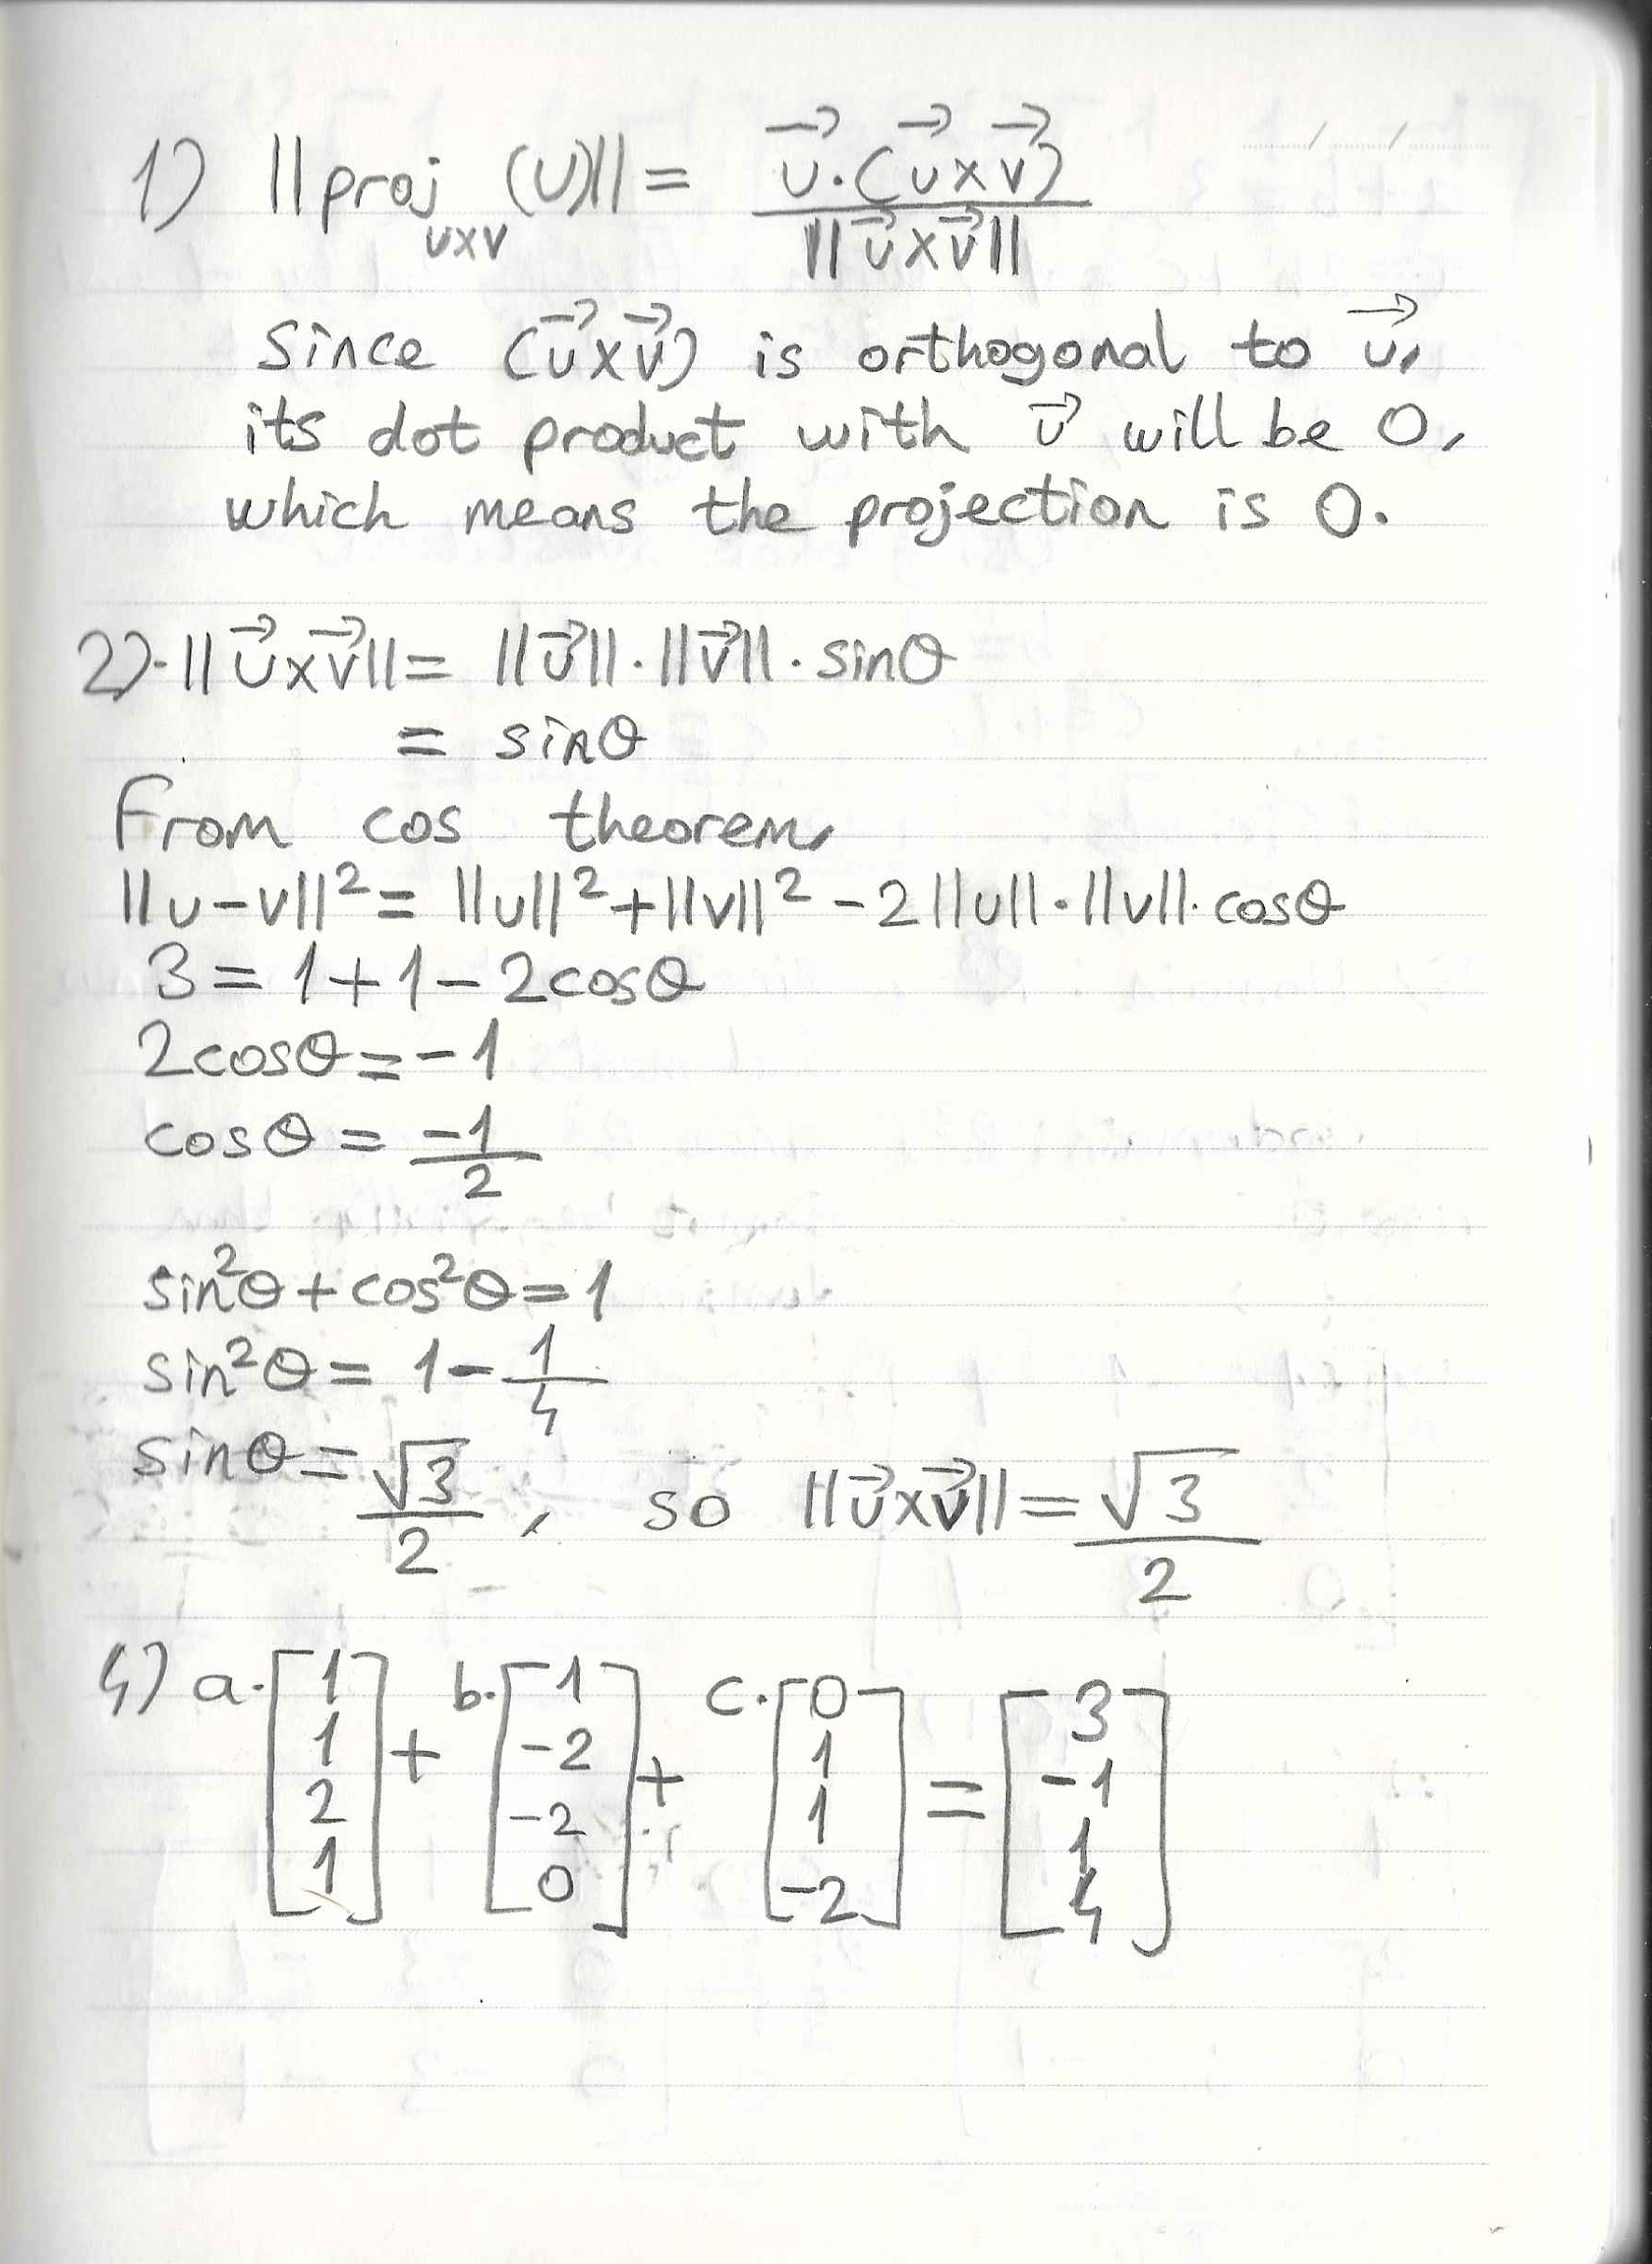 1) ||proj_{u×v} (u)|| = \frac{\vec{u}·(\vec{u}×\vec{v})}{||\vec{u}×\vec{v}||}
Since (\vec{u}×\vec{v}) is orthogonal to \vec{u},
its dot product with \vec{u} will be 0,
which means the projection is 0.
2)·||\vec{u}×\vec{v}|| = ||\vec{u}||·||\vec{v}||·sinθ
= sinθ
From cos theorem,
||u-v||² = ||u||² + ||v||² - 2||u||·||v||·cosθ
3 = 1+1-2cosθ
2cosθ = -1
cosθ = \frac{-1}{2}
sin²θ + cos²θ = 1
sin²θ = 1 - \frac{1}{4}
sinθ = \frac{√3}{2}, so ||\vec{u}×\vec{v}|| = \frac{√3}{2}
4) a·[1 1 2 1] + b·[1 -2 -2 0] + c·[0 1 1 -2] = [3 -1 1 4]